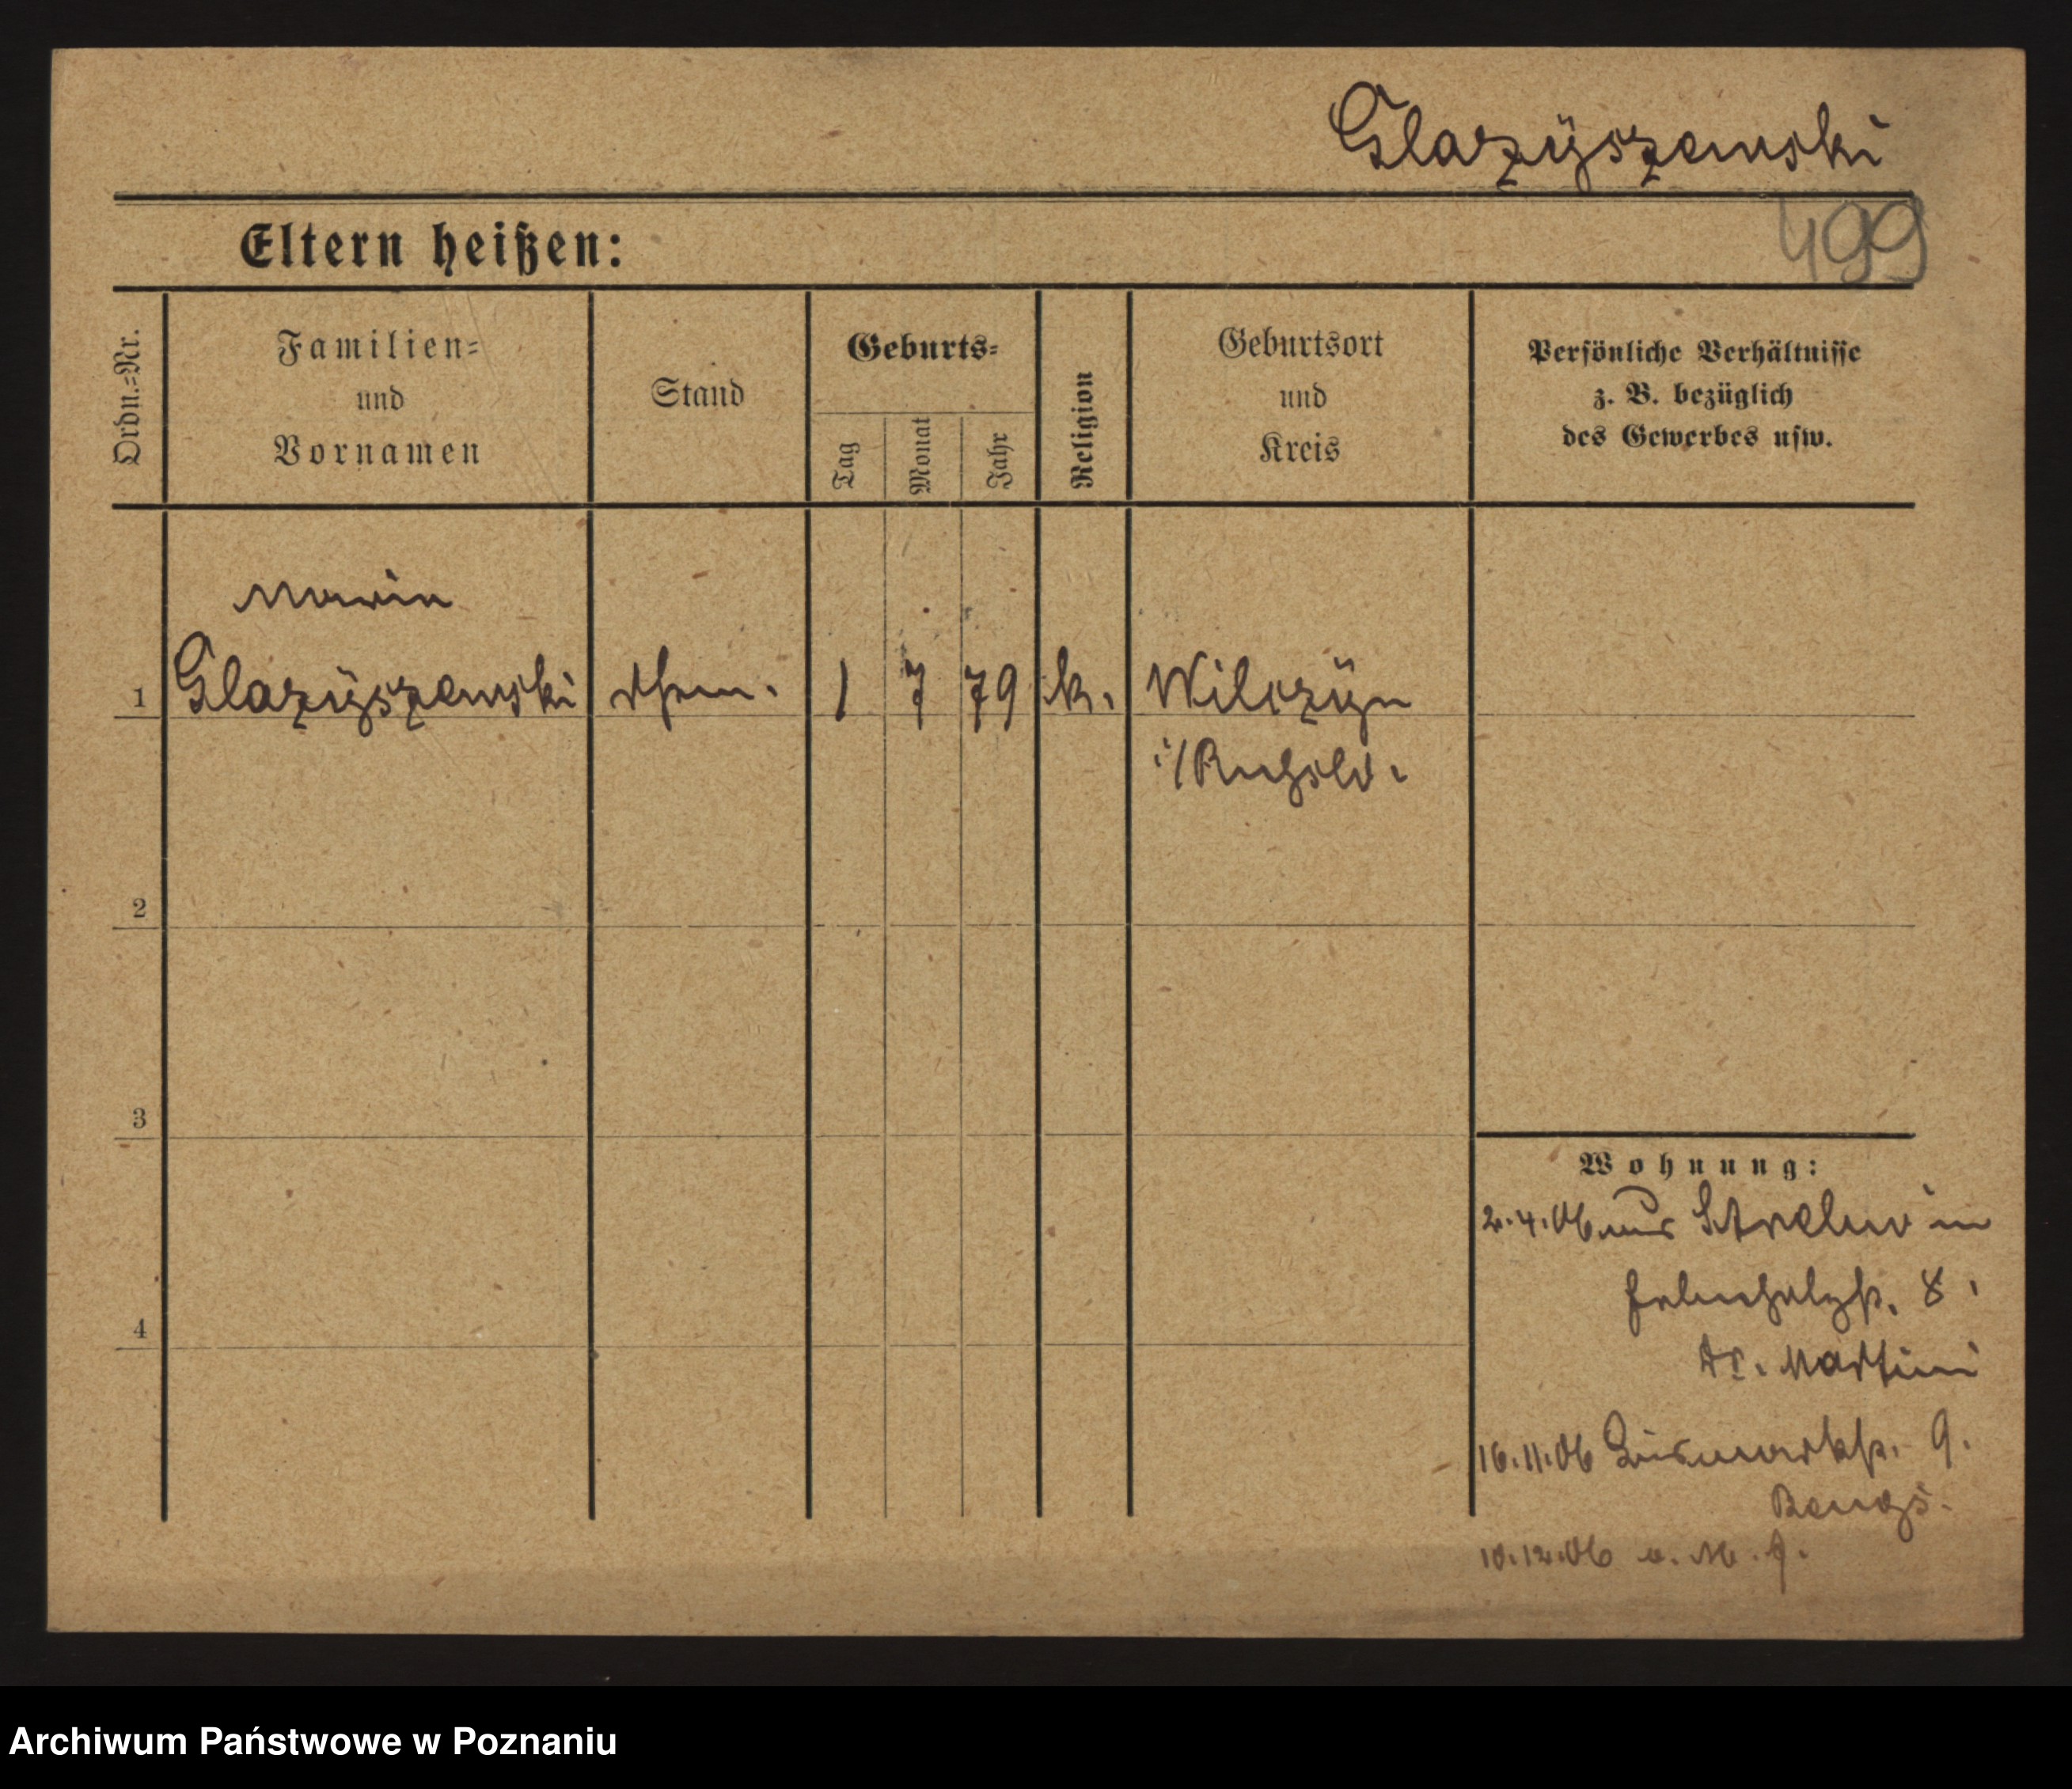 Glazÿszewski
499
Eltern heißen:
Ordn.-Nr.
Familien-
und
Vornamen
Stand
Geburts-
Tag
Monat
Jahr
Religion
Geburtsort
und
Kreis
Persönliche Verhältnisse
z. B. bezüglich
des Gewerbes usw.
Maria
1 Glazÿszewski 1 7 79 k. Wilczÿn
i/Rußld.
2
3
4
Wohnung:
2.4.06 aus Strelno in
8.
Dr. Martini
16.11.06 Bismarckstr. 9.
10.12.06
Archiwum Państwowe w Poznaniu